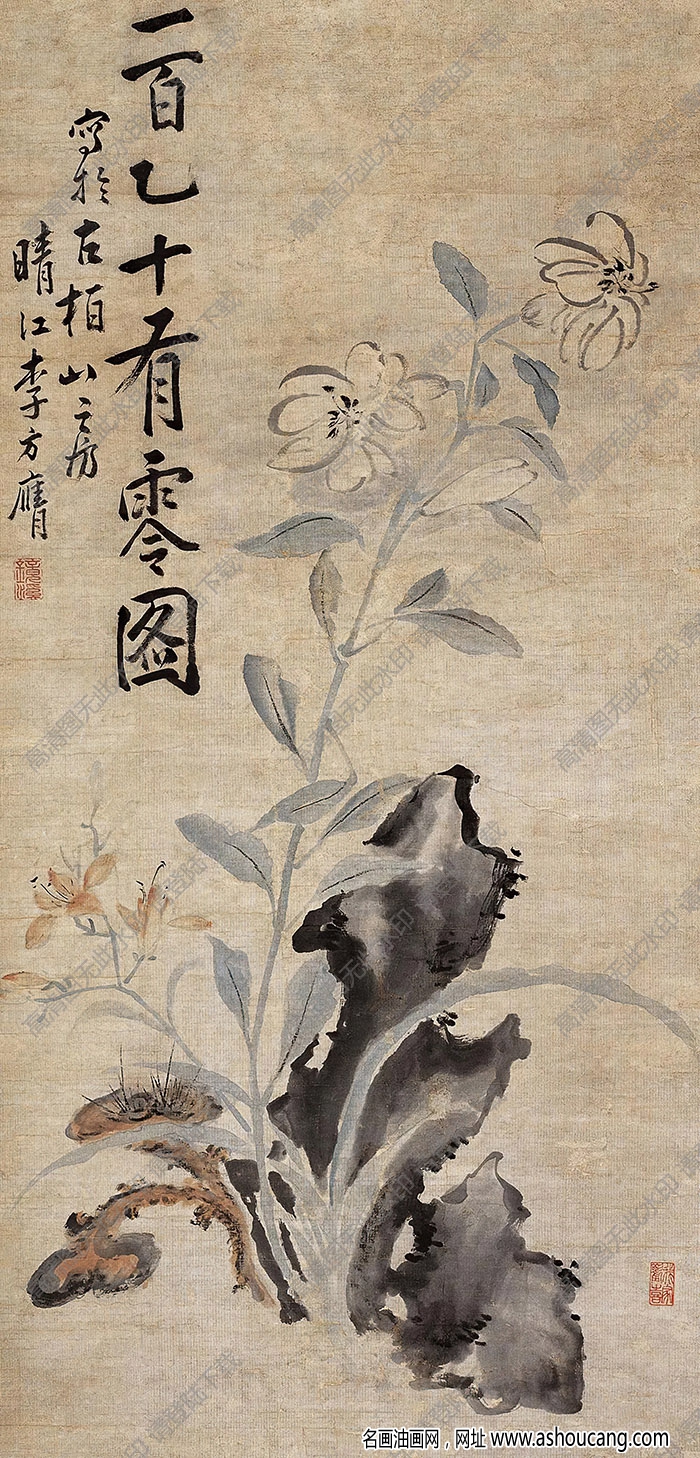 一百乙十有零图
写於古柏山之房
晴江李方膺
名画油画网，网址 www.ashoucang.com
高清图无此水印，请登陆下载